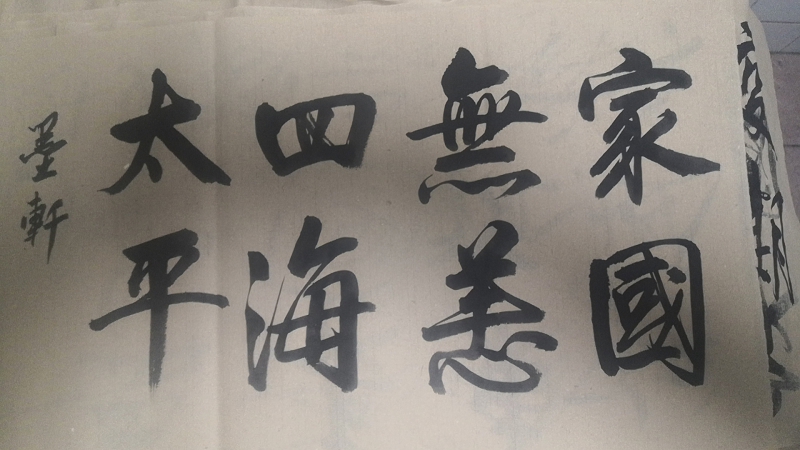 家國
無恙
四海
太平
墨軒